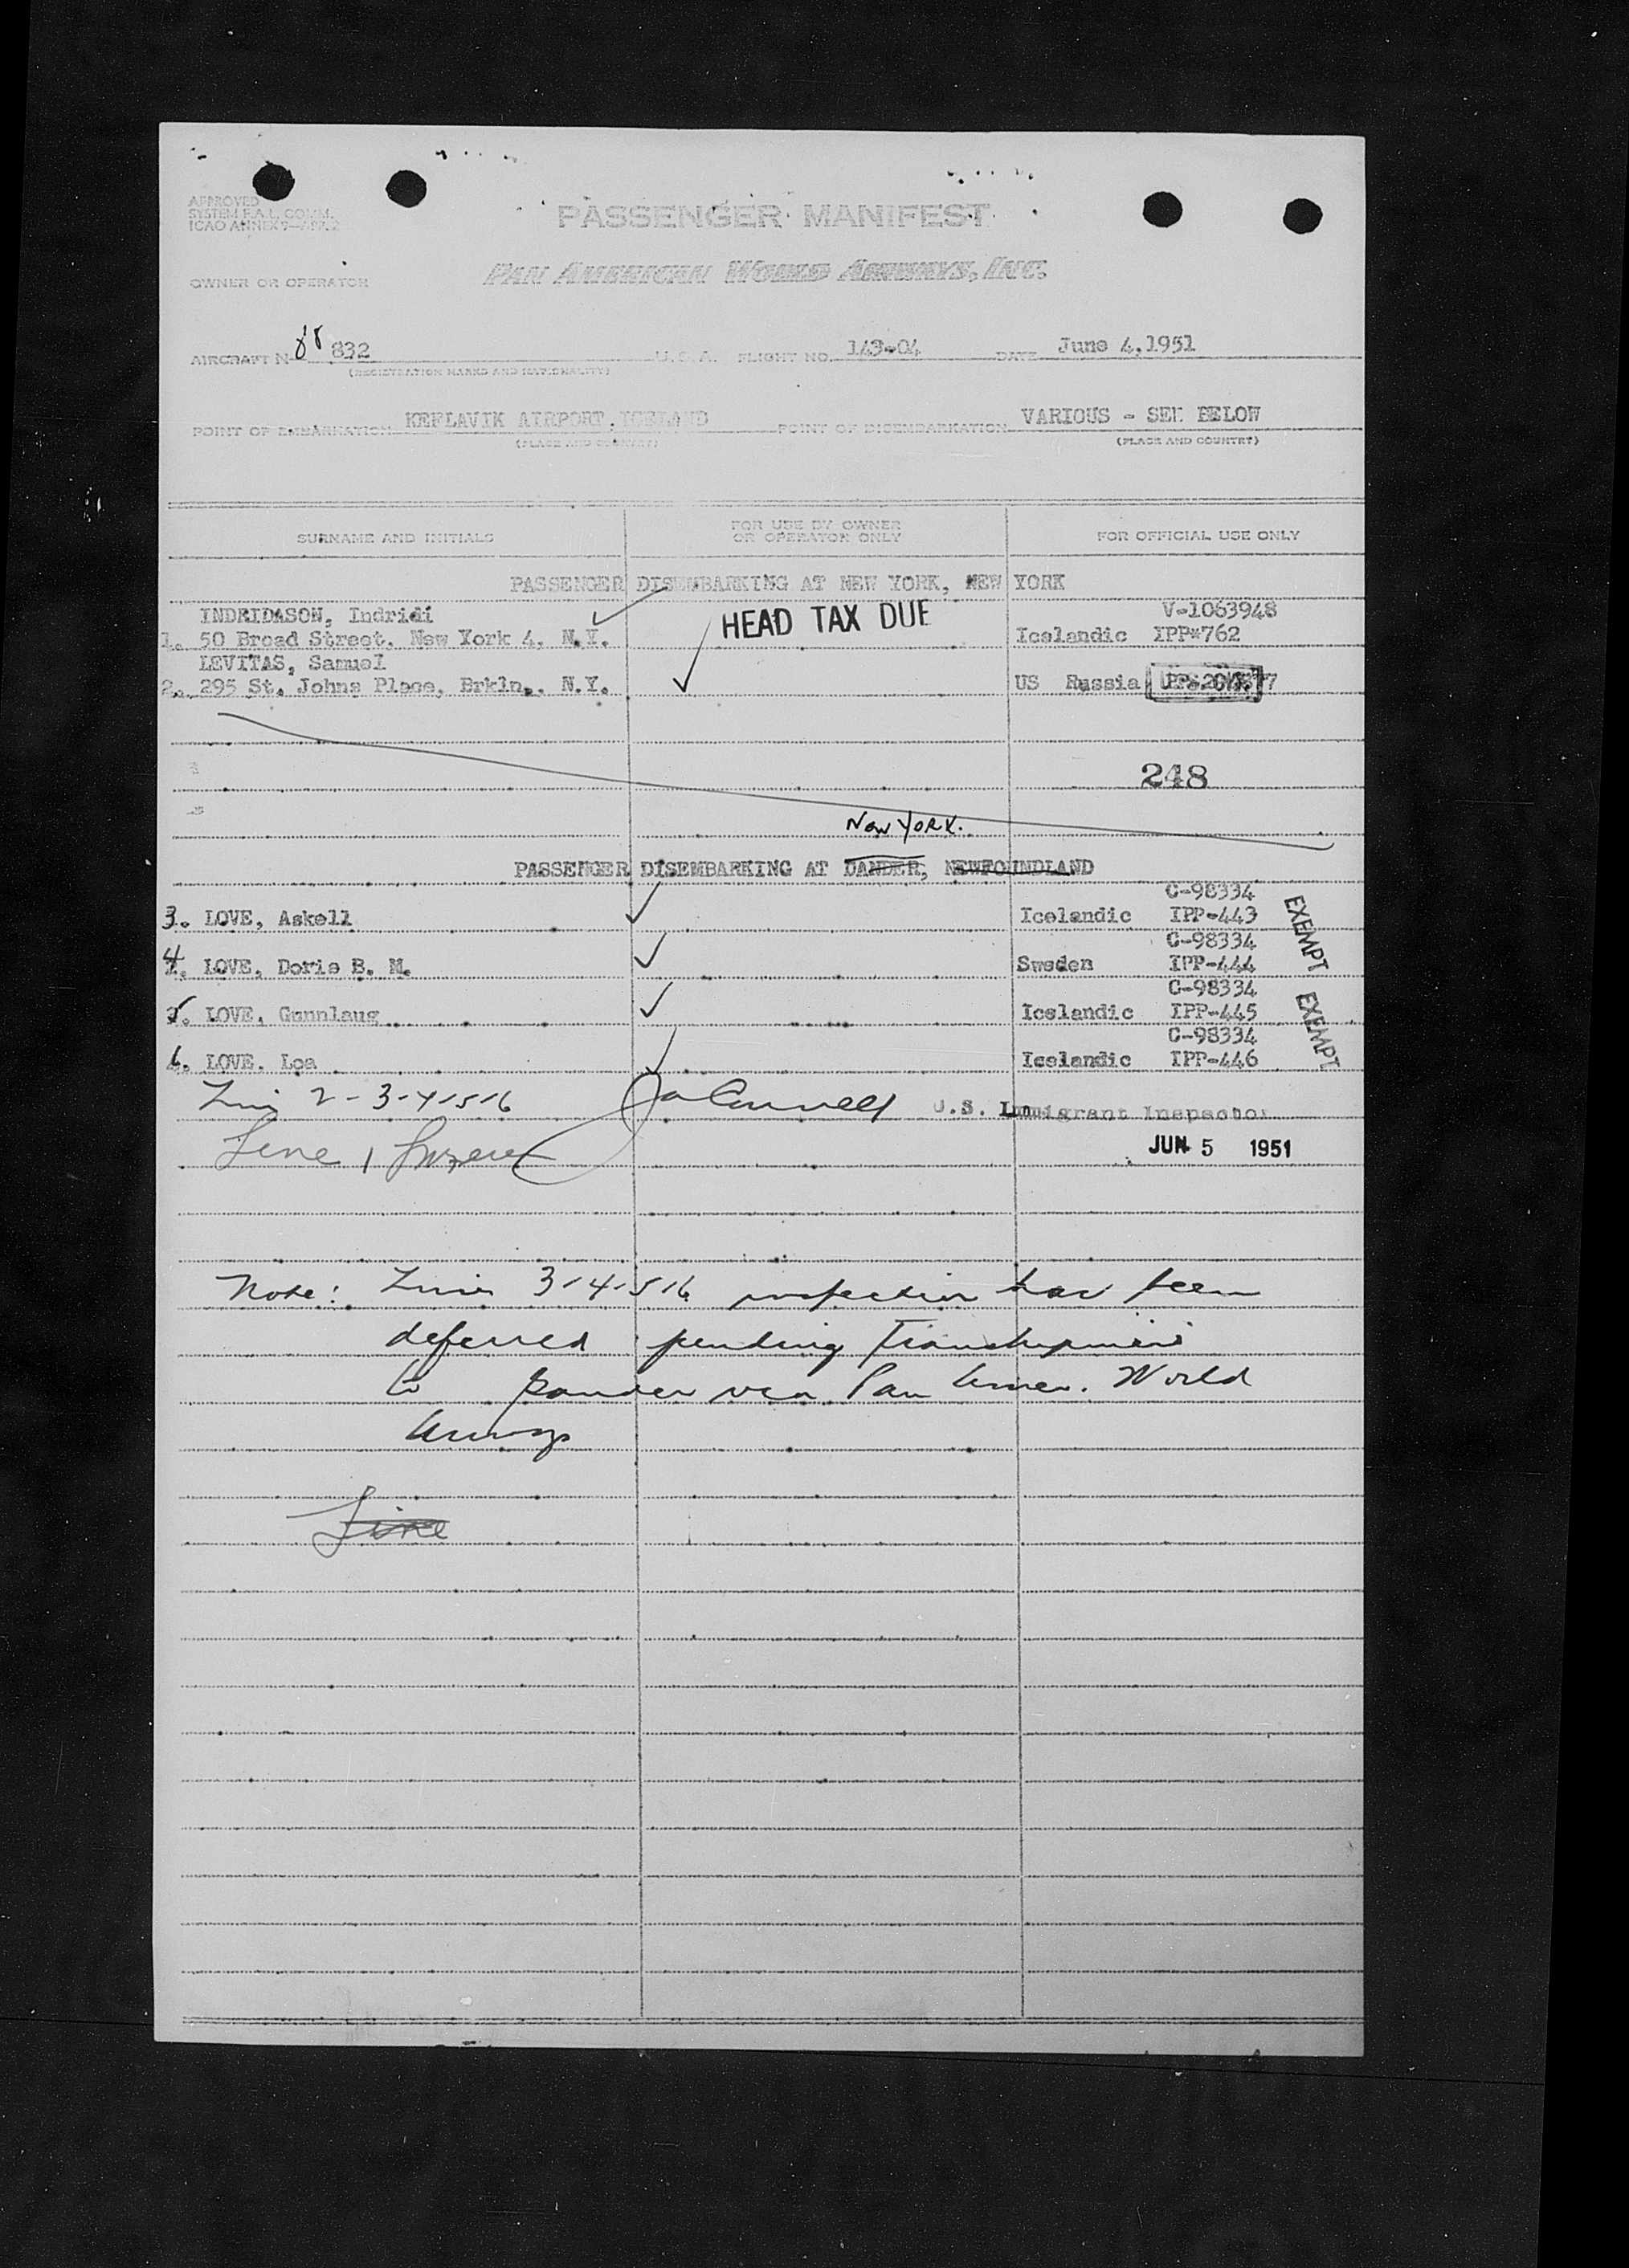 APPROVED
SYSTEM F.A.L. COMM.
ICAO ANNEX 9—APP. 2
PASSENGER MANIFEST
OWNER OR OPERATOR PAN AMERICAN WORLD AIRWAYS, INC.
AIRCRAFT N 88832 U.S.A. FLIGHT NO. 143-04 DATE June 4,1951
(REGISTRATION MARKS AND NATIONALITY)
POINT OF EMBARKATION KEFLAVIK AIRPORT, ICELAND POINT OF DISEMBARKATION VARIOUS - SEE BELOW
(PLACE AND COUNTRY) (PLACE AND COUNTRY)
SURNAME AND INITIALS FOR USE BY OWNER OR OPERATOR ONLY FOR OFFICIAL USE ONLY
PASSENGER DISEMBARKING AT NEW YORK, NEW YORK
INDRIDASON, Indridi HEAD TAX DUE V-1063948
1. 50 Broad Street, New York 4, N.Y. Icelandic IPP*762
LEVITAS, Samuel
2. 295 St. Johns Place, Brkln., N.Y. US Russia
248
New York.
PASSENGER DISEMBARKING AT GANDER, NEWFOUNDLAND
C-98334
3. LOVE, Askell Icelandic IPP-443 EXEMPT
C-98334
4. LOVE, Doris B. M. Sweden IPP-444
C-98334
5. LOVE, Gunnlaug Icelandic IPP-445 EXEMPT
C-98334
6. LOVE, Loa Icelandic IPP-446
2-3-4-5-6 U.S. Immigrant Inspector
Line 1 JUN 5 1951
Note: Lines 3-4-5-6 inspection has been
deferred pending Transhipment
to Gander via Pan Amer. World
Airways
Line